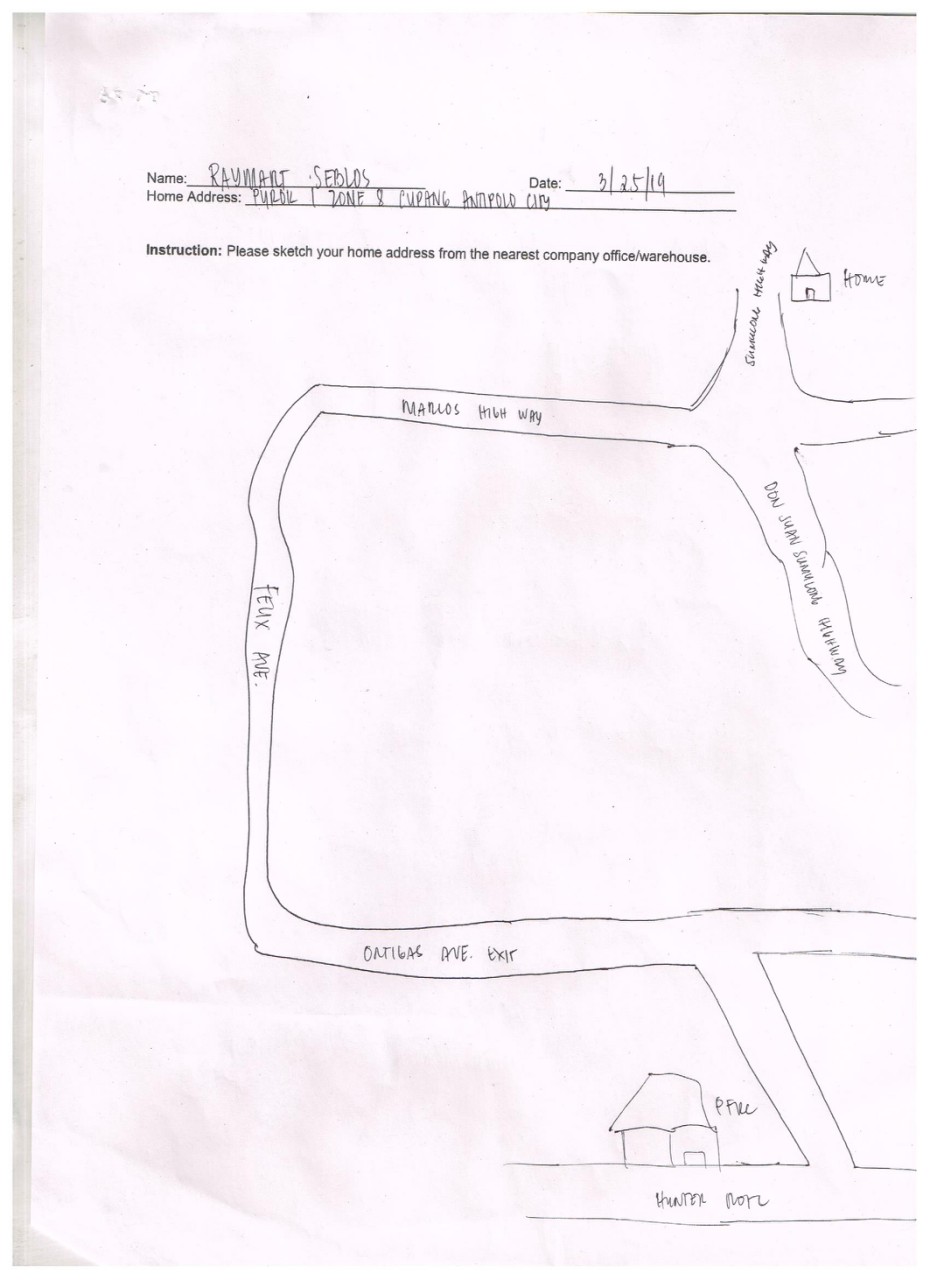 Name: RAYMART SEBLOS Date: 3/25/19
Home Address: PUROK 1 ZONE 8 CUPANG ANTIPOLO CITY
Instruction: Please sketch your home address from the nearest company office/warehouse.
SUMULONG HIGH WAY
HOME
MARCOS HIGH WAY
DON JUAN SUMULONG HIGHWAY
FELIX AVE.
ORTIGAS AVE. EXIT
HUNTER